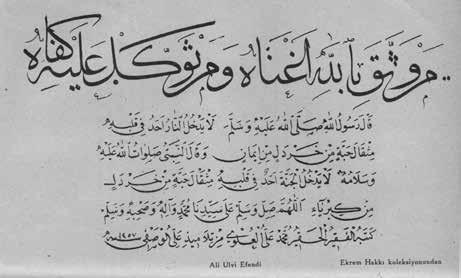 من وثق بالله اغناه ومن توكل عليه كفاه
قال رسول الله صلى الله عليه وسلم لا يدخل النار احد في قلبه
مثقال حبة من خردل من ايمان وقال النبي صلوات الله عليه
وسلامه لا يدخل الجنة احد في قلبه مثقال حبة من خردل
من كبرياء اللهم صل وسلم على سيدنا محمد وآله وصحبه وسلم
كتبه الفقير الحقير محمد علي العلوي من تلاميذ علي الوصفي
Ali Ulvi Efendi
Ekrem Hakkı koleksiyonundan